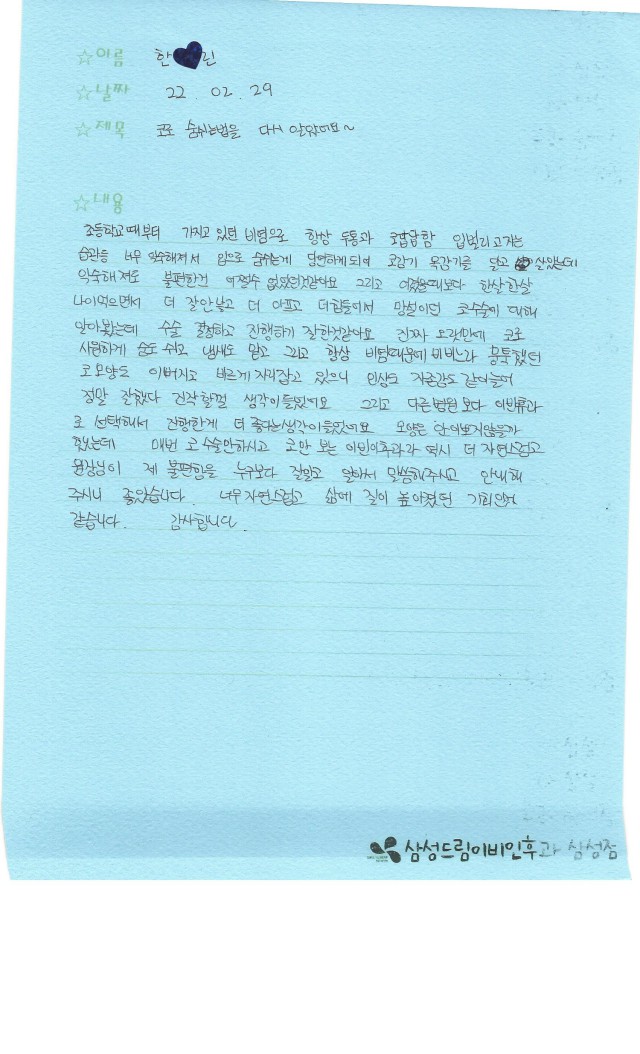 ☆이름 한♥린
☆날짜 22. 02. 29
☆제목 코로 숨쉬는법을 다시 알았어요~
☆내용
초등학교때부터 가지고 있던 비염으로 항상 두통과 코답답함 입벌리고자는
습관들 너무 익숙해져서 입으로 숨쉬는게 당연하게되어 코감기 목감기를 달고 살았는데
익숙해져도 불편한건 어쩔수 없었던것같아요 그리고 어렸을때보다 한살한살
나이먹으면서 더 잘안낫고 더 아프고 더힘들어서 망설이던 코수술에 대해
알아봤는데 수술 결정하고 진행하기 잘한것같아요 진짜 오랫만에 코로
시원하게 숨도 쉬고 냄새도 맡고 그리고 항상 비염때문에 비비느라 뭉툭했던
코모양도 이뻐지고 바르게 자리잡고 있으니 인상도 자존감도 같이늘어
정말 잘했다 진작할껄 생각이들었어요 그리고 다른병원보다 이비인후과
로 선택해서 진행한게 더 좋다는생각이들었어요 모양은 안이쁘지않을까
했는데 매번 코수술만하시고 코만 보는 이비인후과라 역시 더 자연스럽고
원장님이 제 불편함을 누구보다 잘알고 알아서 말씀해주시고 안내해
주시니 좋았습니다. 너무자연스럽고 삶에 질이 높아졌던 기회인거
같습니다. 감사합니다.
삼성드림이비인후과 삼성점